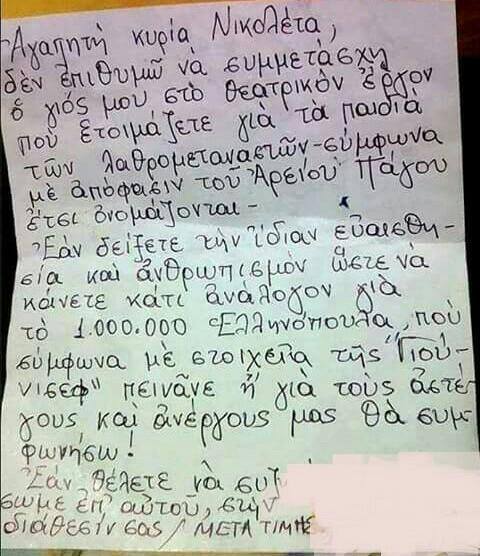 Ἀγαπητή κυρία Νικολέτα,
δέν ἐπιθυμῶ νά συμμετάσχη
ὁ γιός μου στό θεατρικόν ἔργον
πού ἑτοιμάζετε γιά τά παιδιά
τῶν λαθρομεταναστῶν-σύμφωνα
μέ ἀπόφασιν τοῦ Ἀρείου Πάγου
ἔτσι ὀνομάζονται-
Ἐάν δείξετε τήν ἴδιαν εὐαισθη-
σία καί ἀνθρωπισμόν ὥστε νά
κάνετε κάτι ἀνάλογον γιά
τό 1.000.000 Ἑλληνόπουλα, πού
σύμφωνα μέ στοιχεῖα τῆς "Γιού-
νισεφ" πεινᾶνε ἤ γιά τούς ἀστέ-
γους καί ἀνέργους μας θά συμ-
φωνήσω!
Ἐάν θέλετε νά συζ
σωμε ἐπ' αὐτοῦ, στήν
διάθεσίν σας / ΜΕΤΑ ΤΙΜΗΣ